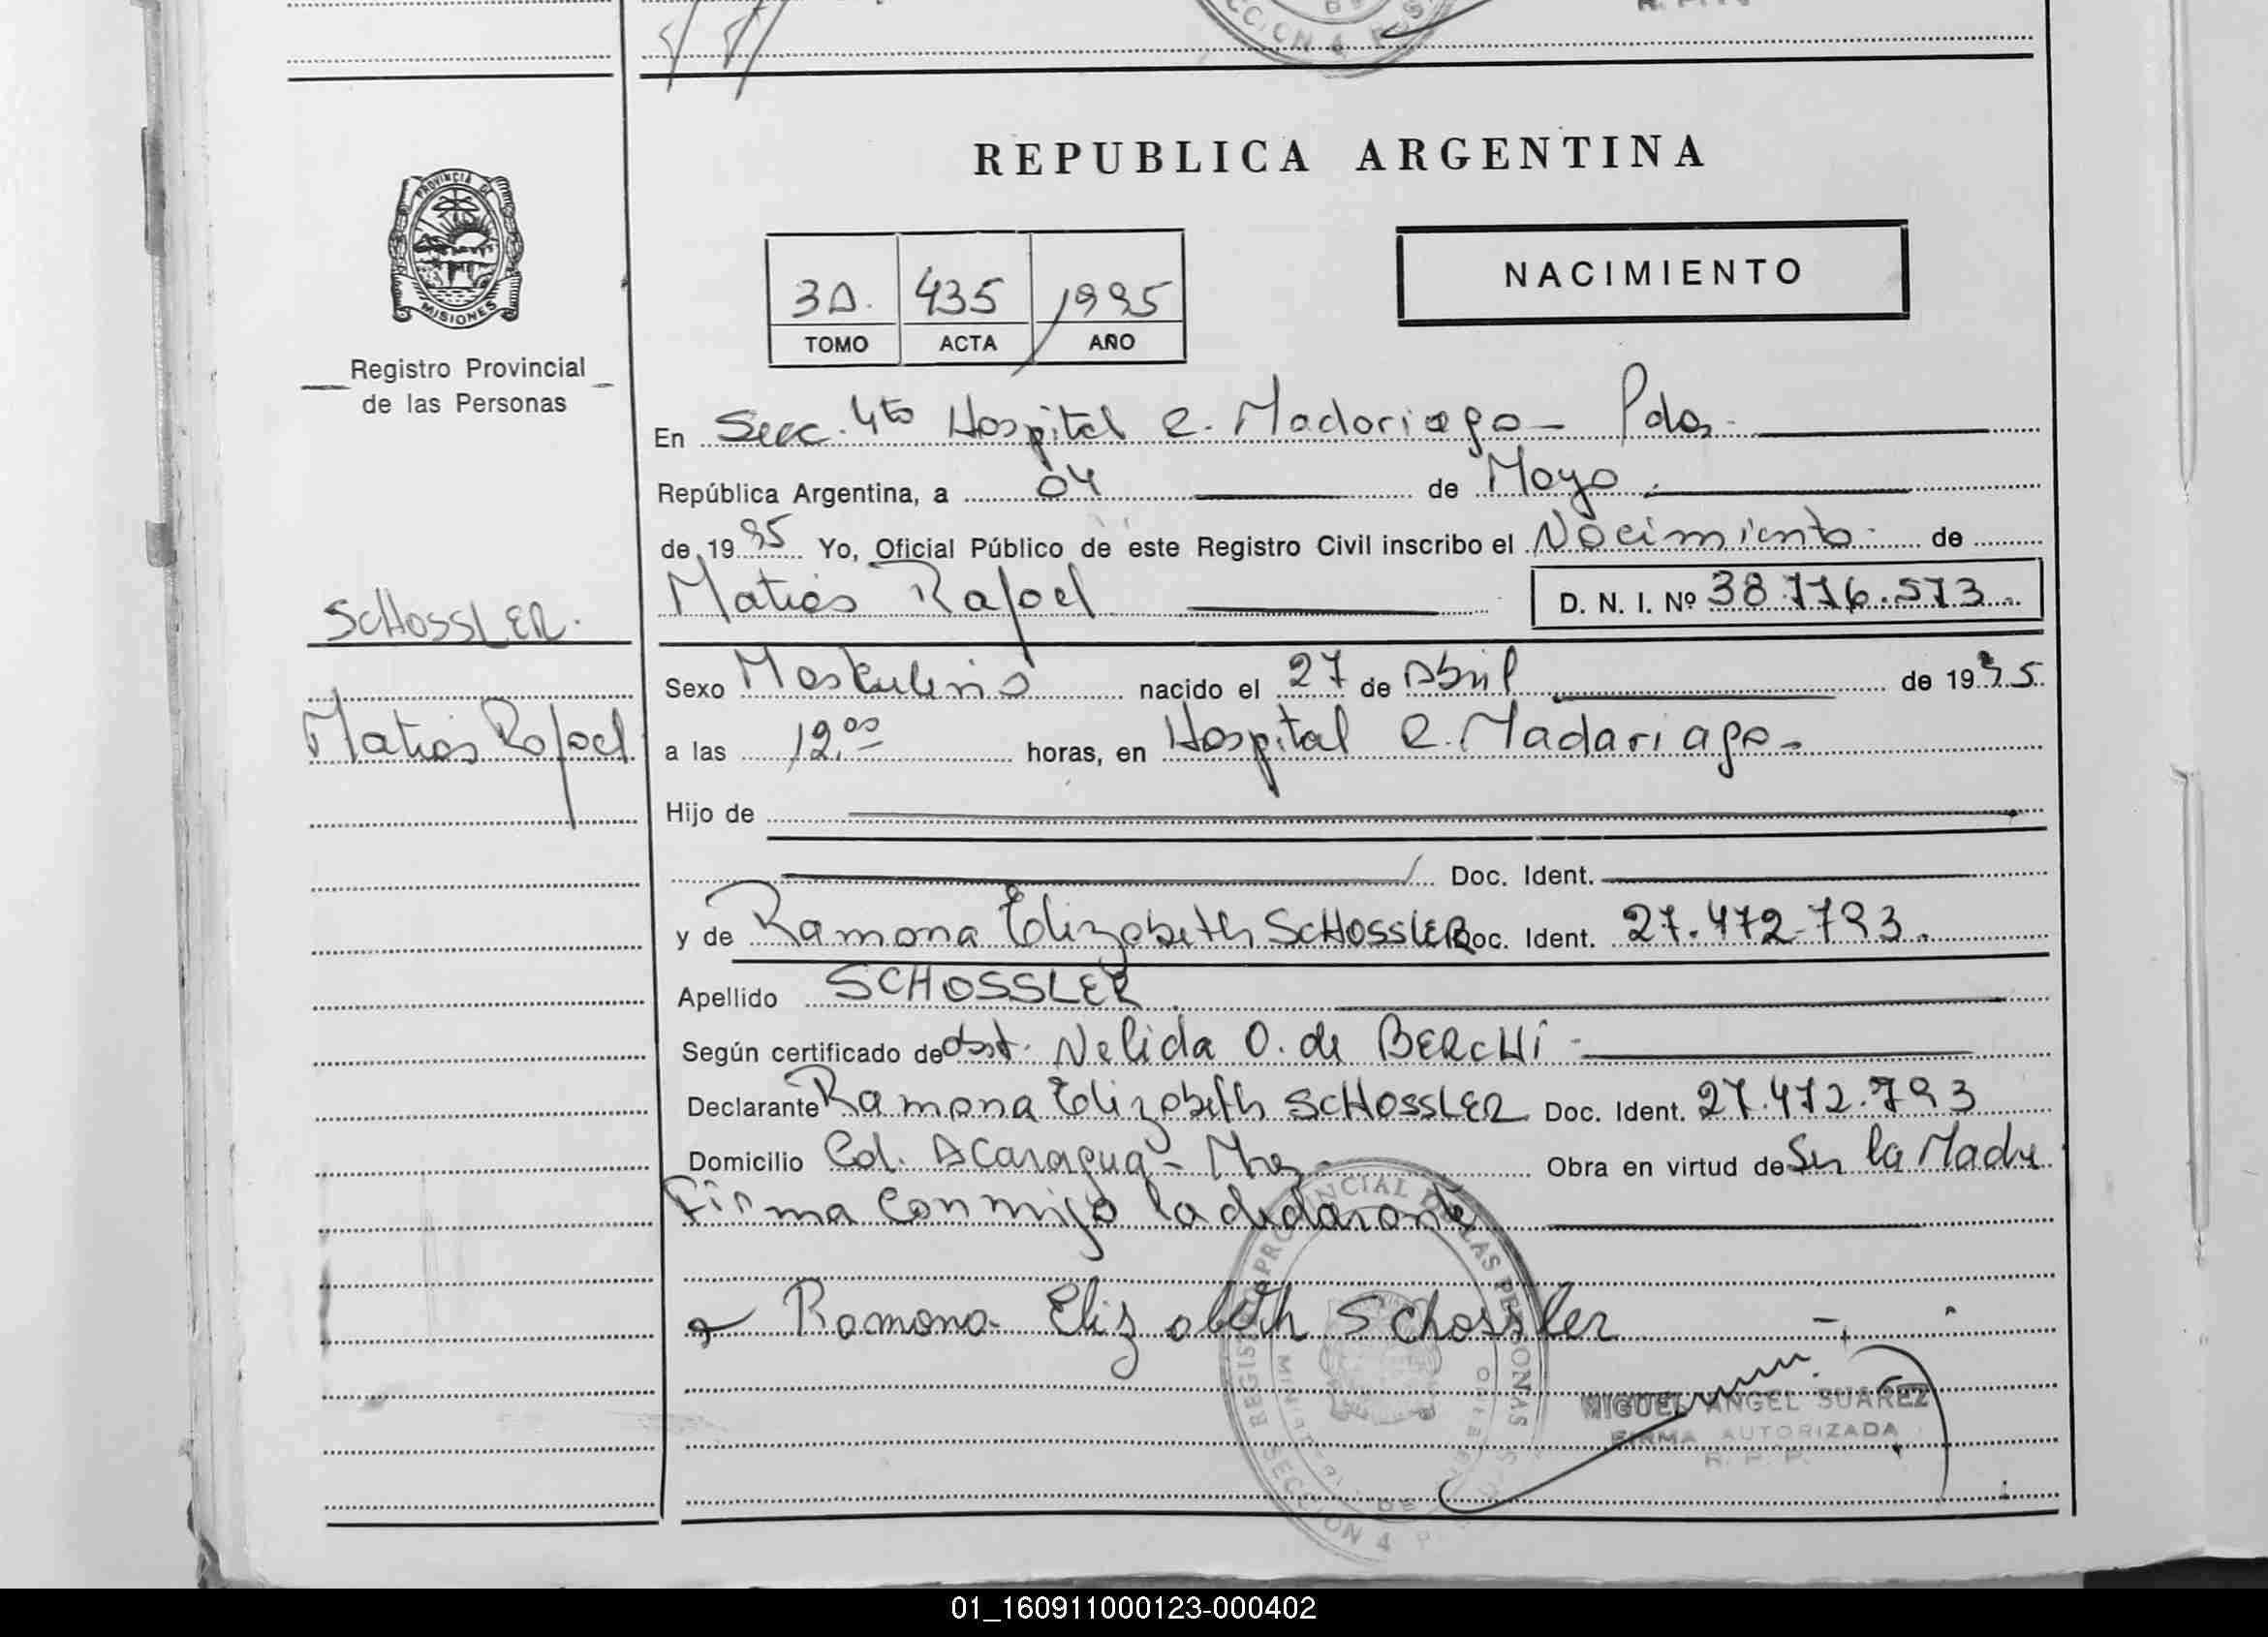 REPUBLICA ARGENTINA
PROVINCIA DE
MISIONES
Registro Provincial
de las Personas
3A. 435 1995
TOMO ACTA AÑO
NACIMIENTO
En Secc. 4ta Hospital R. Madariaga - Pdas.
República Argentina, a 04 de Mayo
de 1995 Yo, Oficial Público de este Registro Civil inscribo el Nacimiento de
Matias Rafael D. N. I. Nº 38.776.573
SCHOSSLER.
Matias Rafael
Sexo Masculino nacido el 27 de Abril de 1995.
a las 12.00 horas, en Hospital R. Madariaga -
Hijo de
Doc. Ident.
y de Ramona Elizabeth SCHOSSLER Doc. Ident. 27.472.793.
Apellido SCHOSSLER
Según certificado de obst. Nelida O. de BERCHI -
Declarante Ramona Elizabeth SCHOSSLER Doc. Ident. 27.472.793
Domicilio Col. Acaragua - Mnes. Obra en virtud de Ser la Madre
Firma conmigo la declarante
Ramona Elizabeth Schossler
REGISTRO PROVINCIAL DE LAS PERSONAS
SECCION 4
MIGUEL ANGEL SUAREZ
FIRMA AUTORIZADA
R. P. P.
01_160911000123-000402